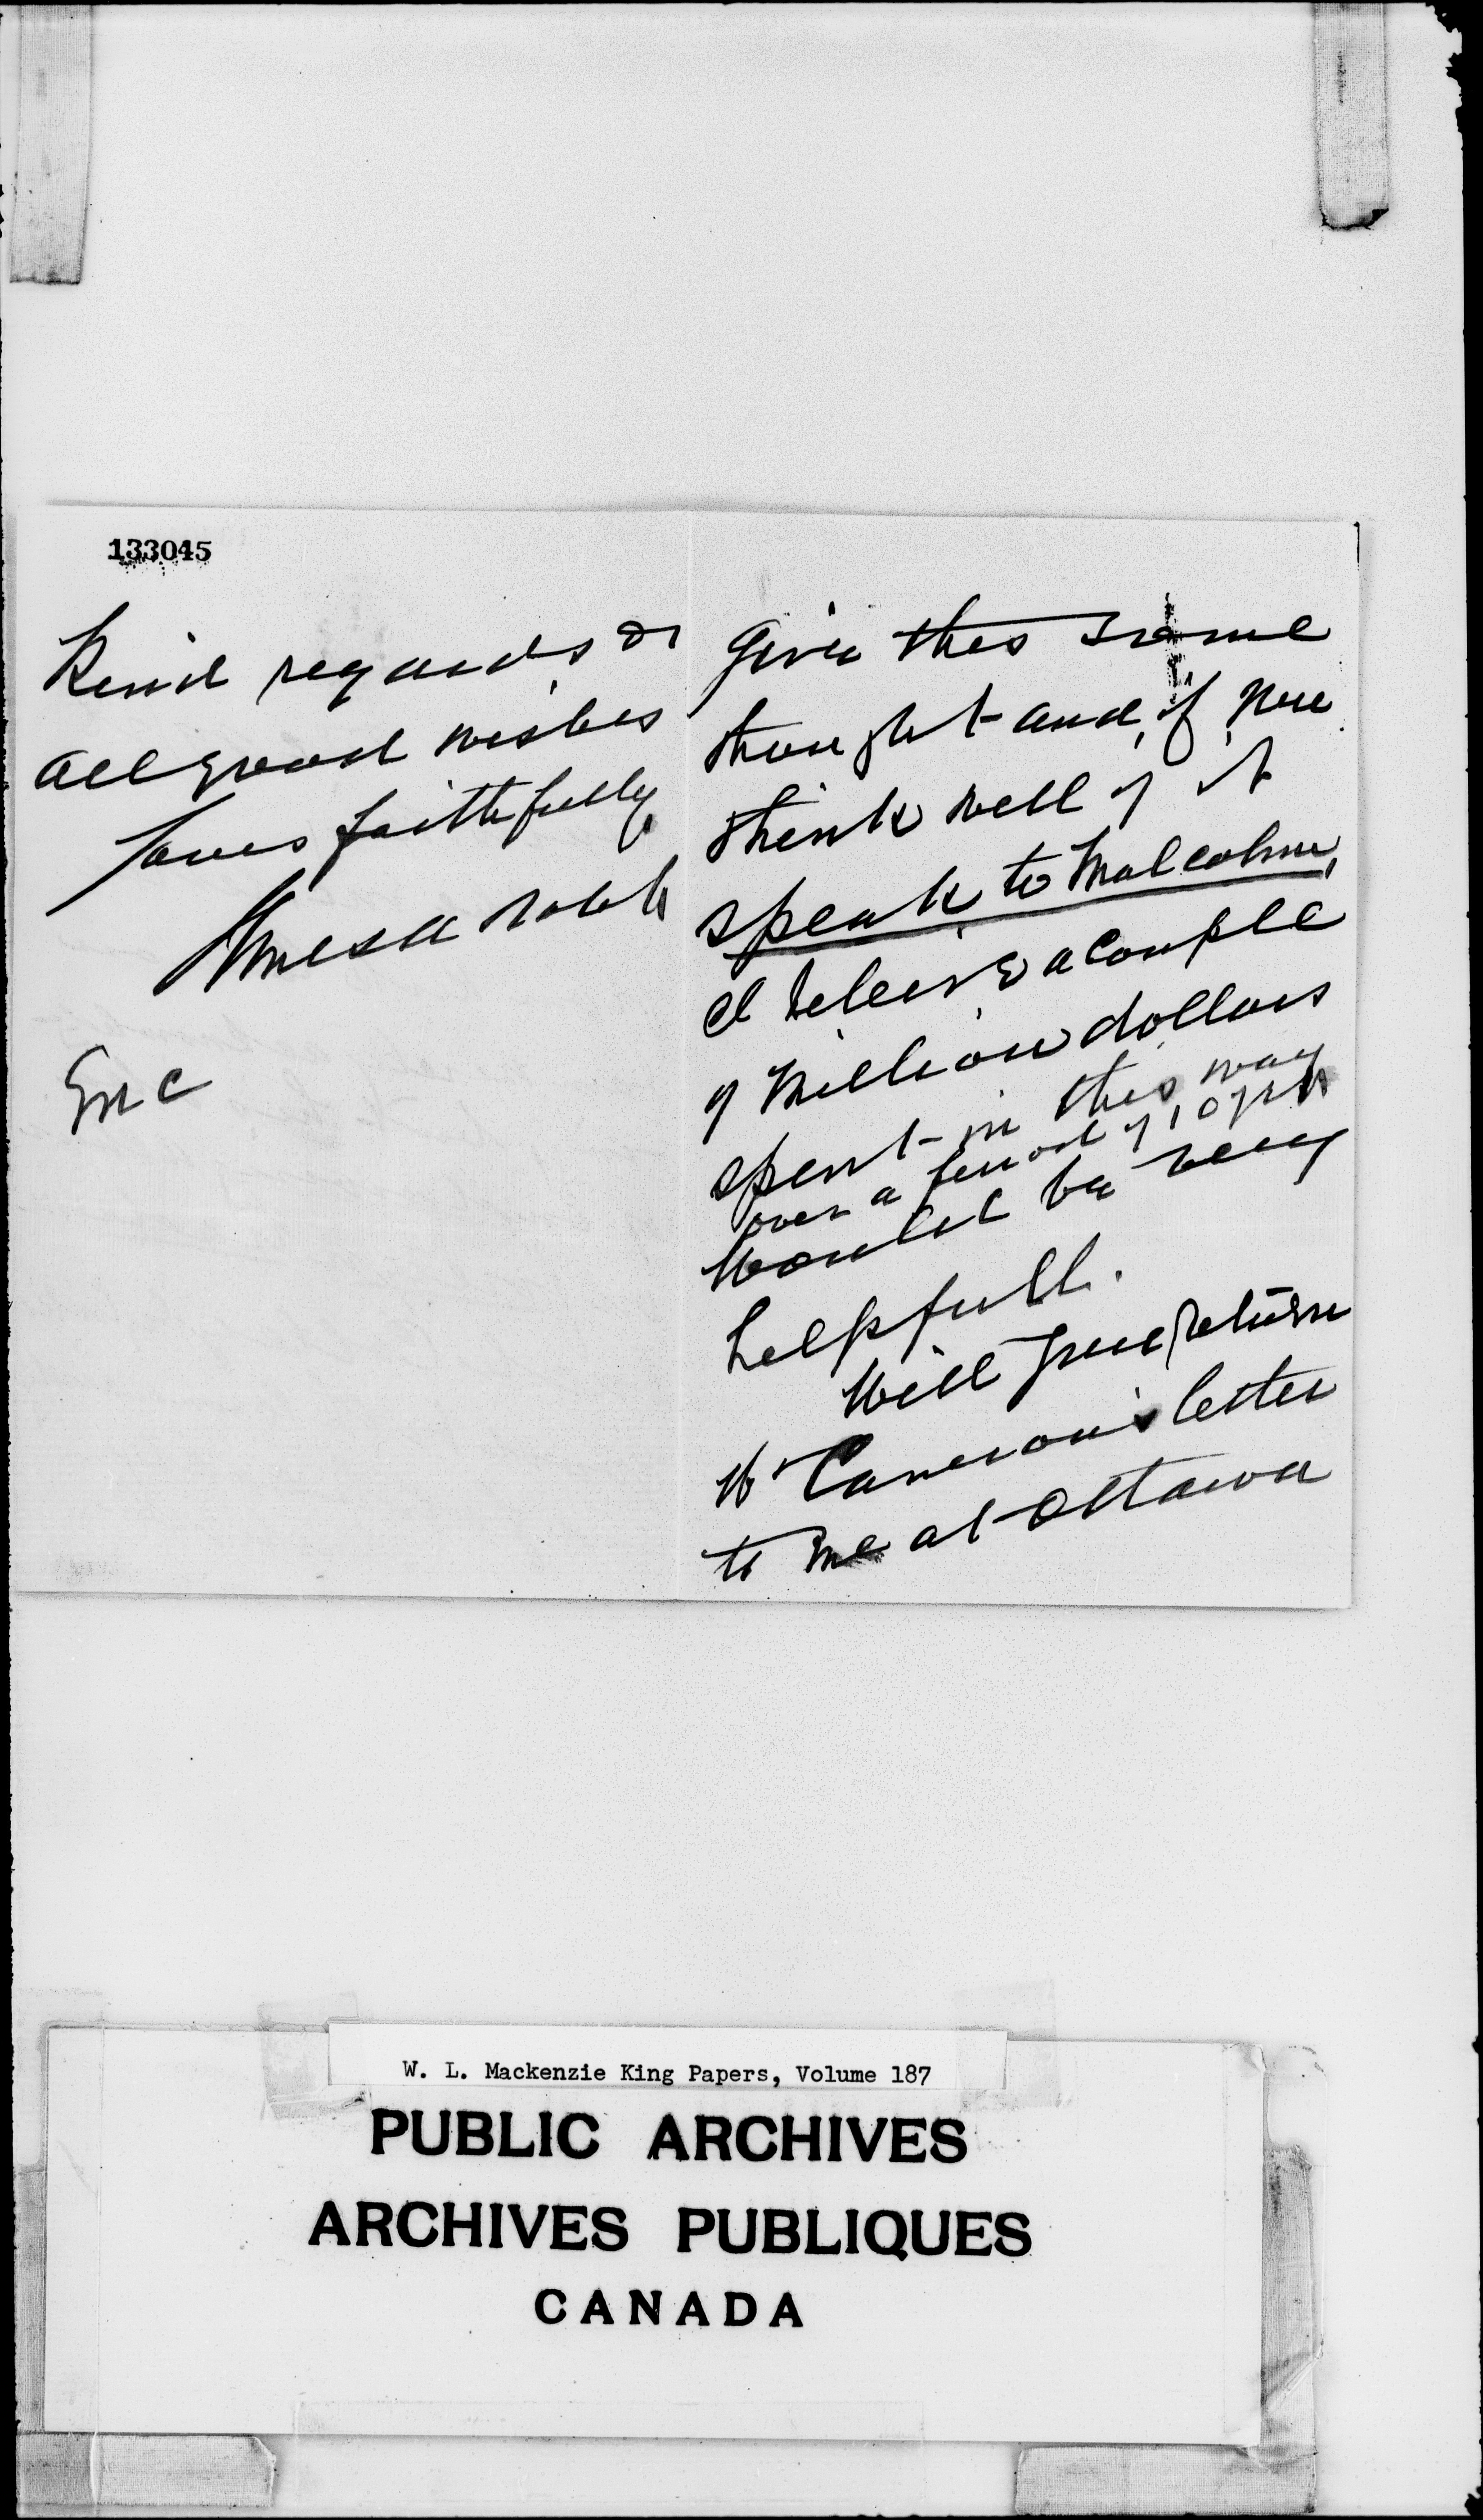 133045
Kind regards &
all good wishes
Yours faithfully
James A Robb
Enc
give this some
thought and, if you
think well of it
speak to Malcolm,
I believe a couple
of million dollars
spent in this way
over a period of 10 yrs
would be very
helpfull.
Will you return
Mr Cameron's letter
to me at Ottawa
W. L. Mackenzie King Papers, Volume 187
PUBLIC ARCHIVES
ARCHIVES PUBLIQUES
CANADA